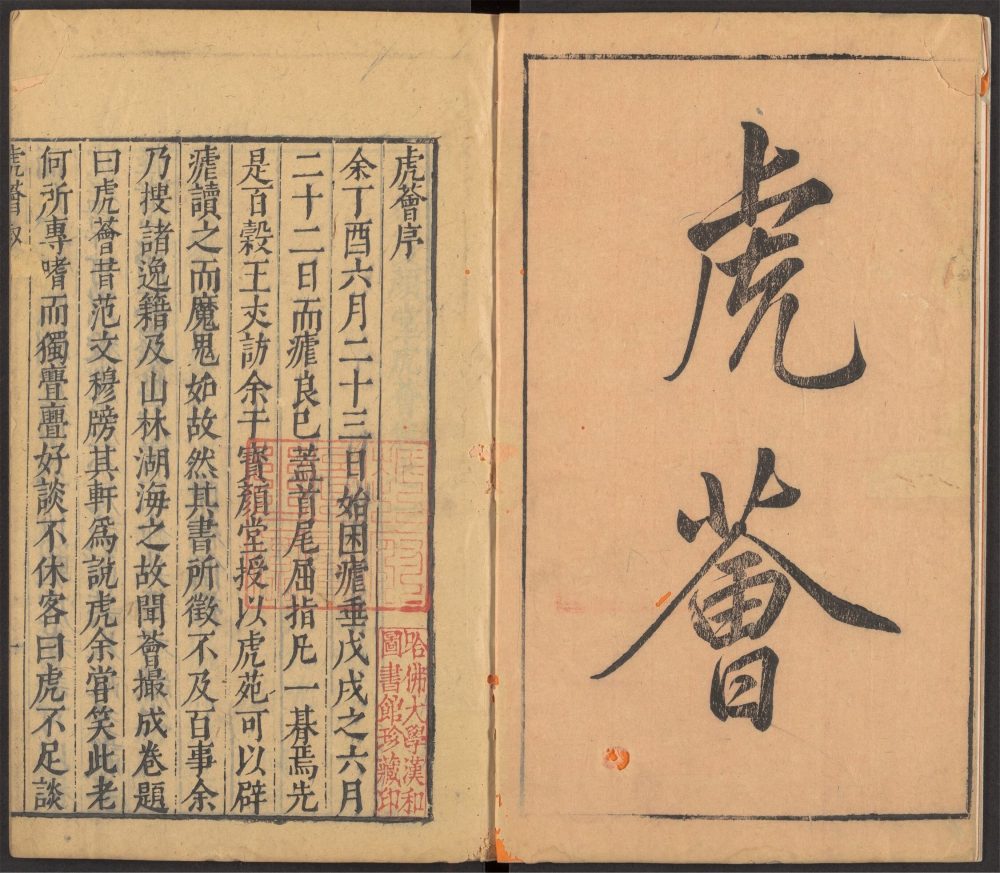 虎薈
虎薈序
余丁酉六月二十三日始困瘧垂戊戌之六月
二十二日而瘧良已蓋首尾屈指凡一朞焉先
是百穀王丈訪余于寶顏堂授以虎苑可以辟
瘧讀之而魔鬼如故然其書所徵不及百事余
乃搜諸逸籍及山林湖海之故聞薈撮成卷題
曰虎薈昔范文穆牓其軒爲說虎余嘗笑此老
何所專嗜而獨亹亹好談不休客曰虎不足談
虎薈敘
一
哈佛大學漢和
圖書館珍藏印